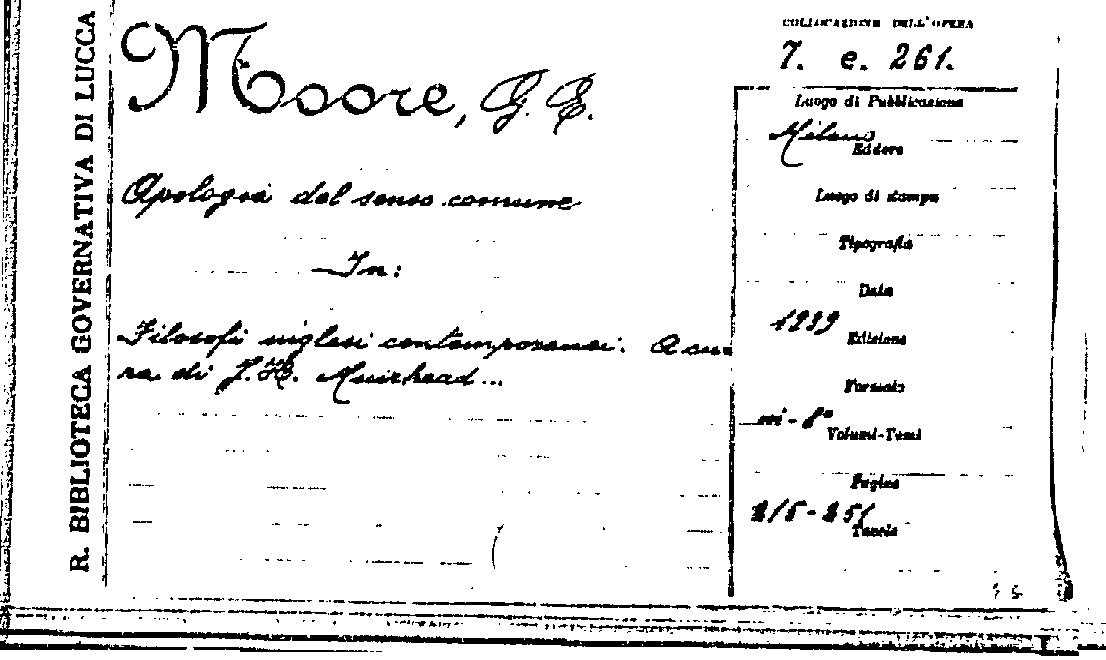 R. BIBLIOTECA GOVERNATIVA DI LUCCA
COLLOCAZIONE DELL'OPERA
7. e. 261.
Moore, G. E.
Apologia del senso comune
In:
Filosofi inglesi contemporanei. A cu-
ra di J. H. Muirhead...
Luogo di Pubblicazione
Milano
Editore
Luogo di stampa
Tipografia
Data
1939
Edizione
Formato
in-8°
Volumi-Tomi
Pagine
215-251
Tavole